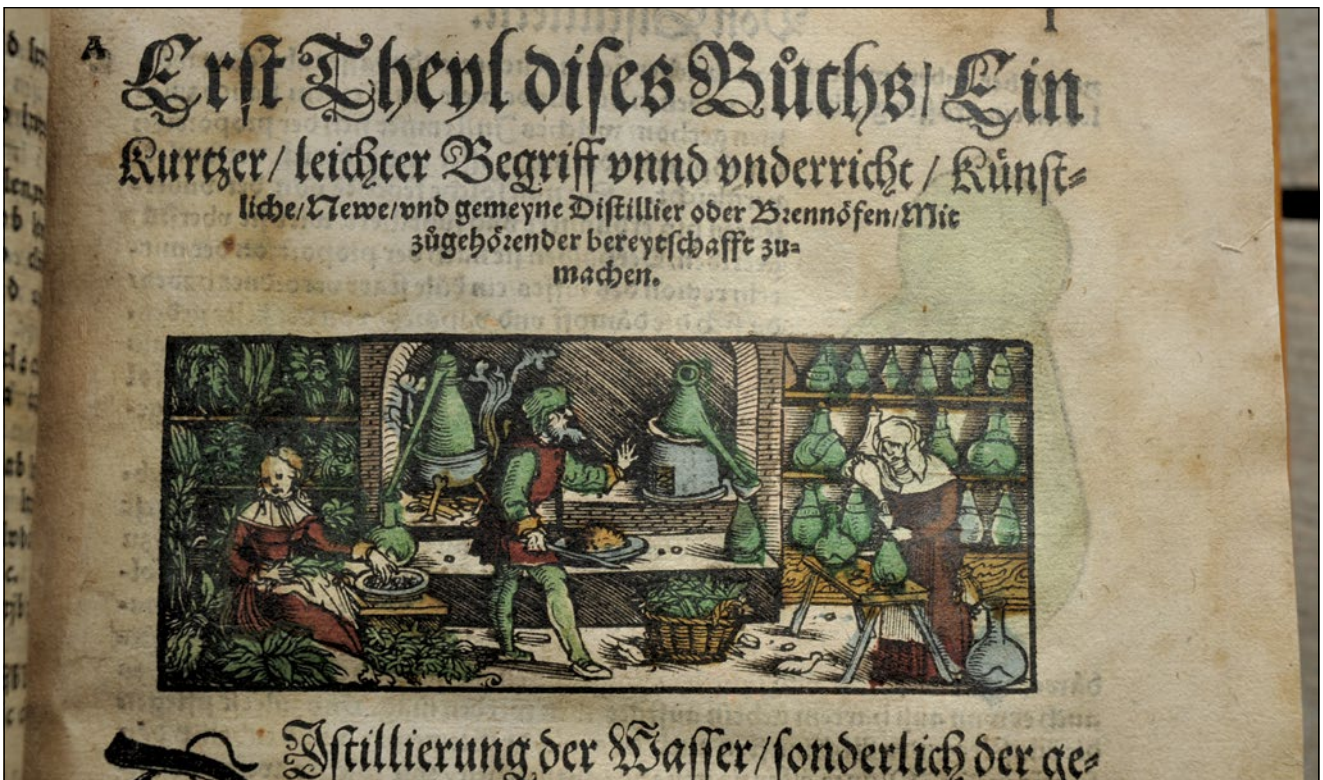 A
Erſt Theyl diſes Bůchs/ Ein
Kurtzer/ leichter Begriff vnnd vnderricht / Künſt⸗
liche/ Newe/ vnd gemeyne Diſtillier oder Brennöfen/ Mit
zůgehörender bereytſchafft zu⸗
machen.
Iſtillierung der Waſſer/ ſonderlich der ge⸗